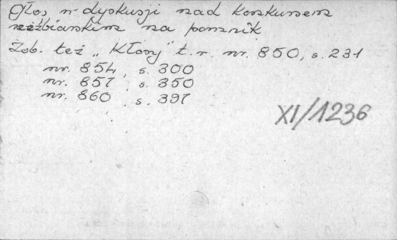 Głos w dyskusji nad konkursem
rzeźbiarskim na pomnik
Zob. też "Kłosy" t.r. nr. 850, s. 231
nr. 854, s. 300
nr. 857, s. 350
nr. 860, s. 397
XI/1236